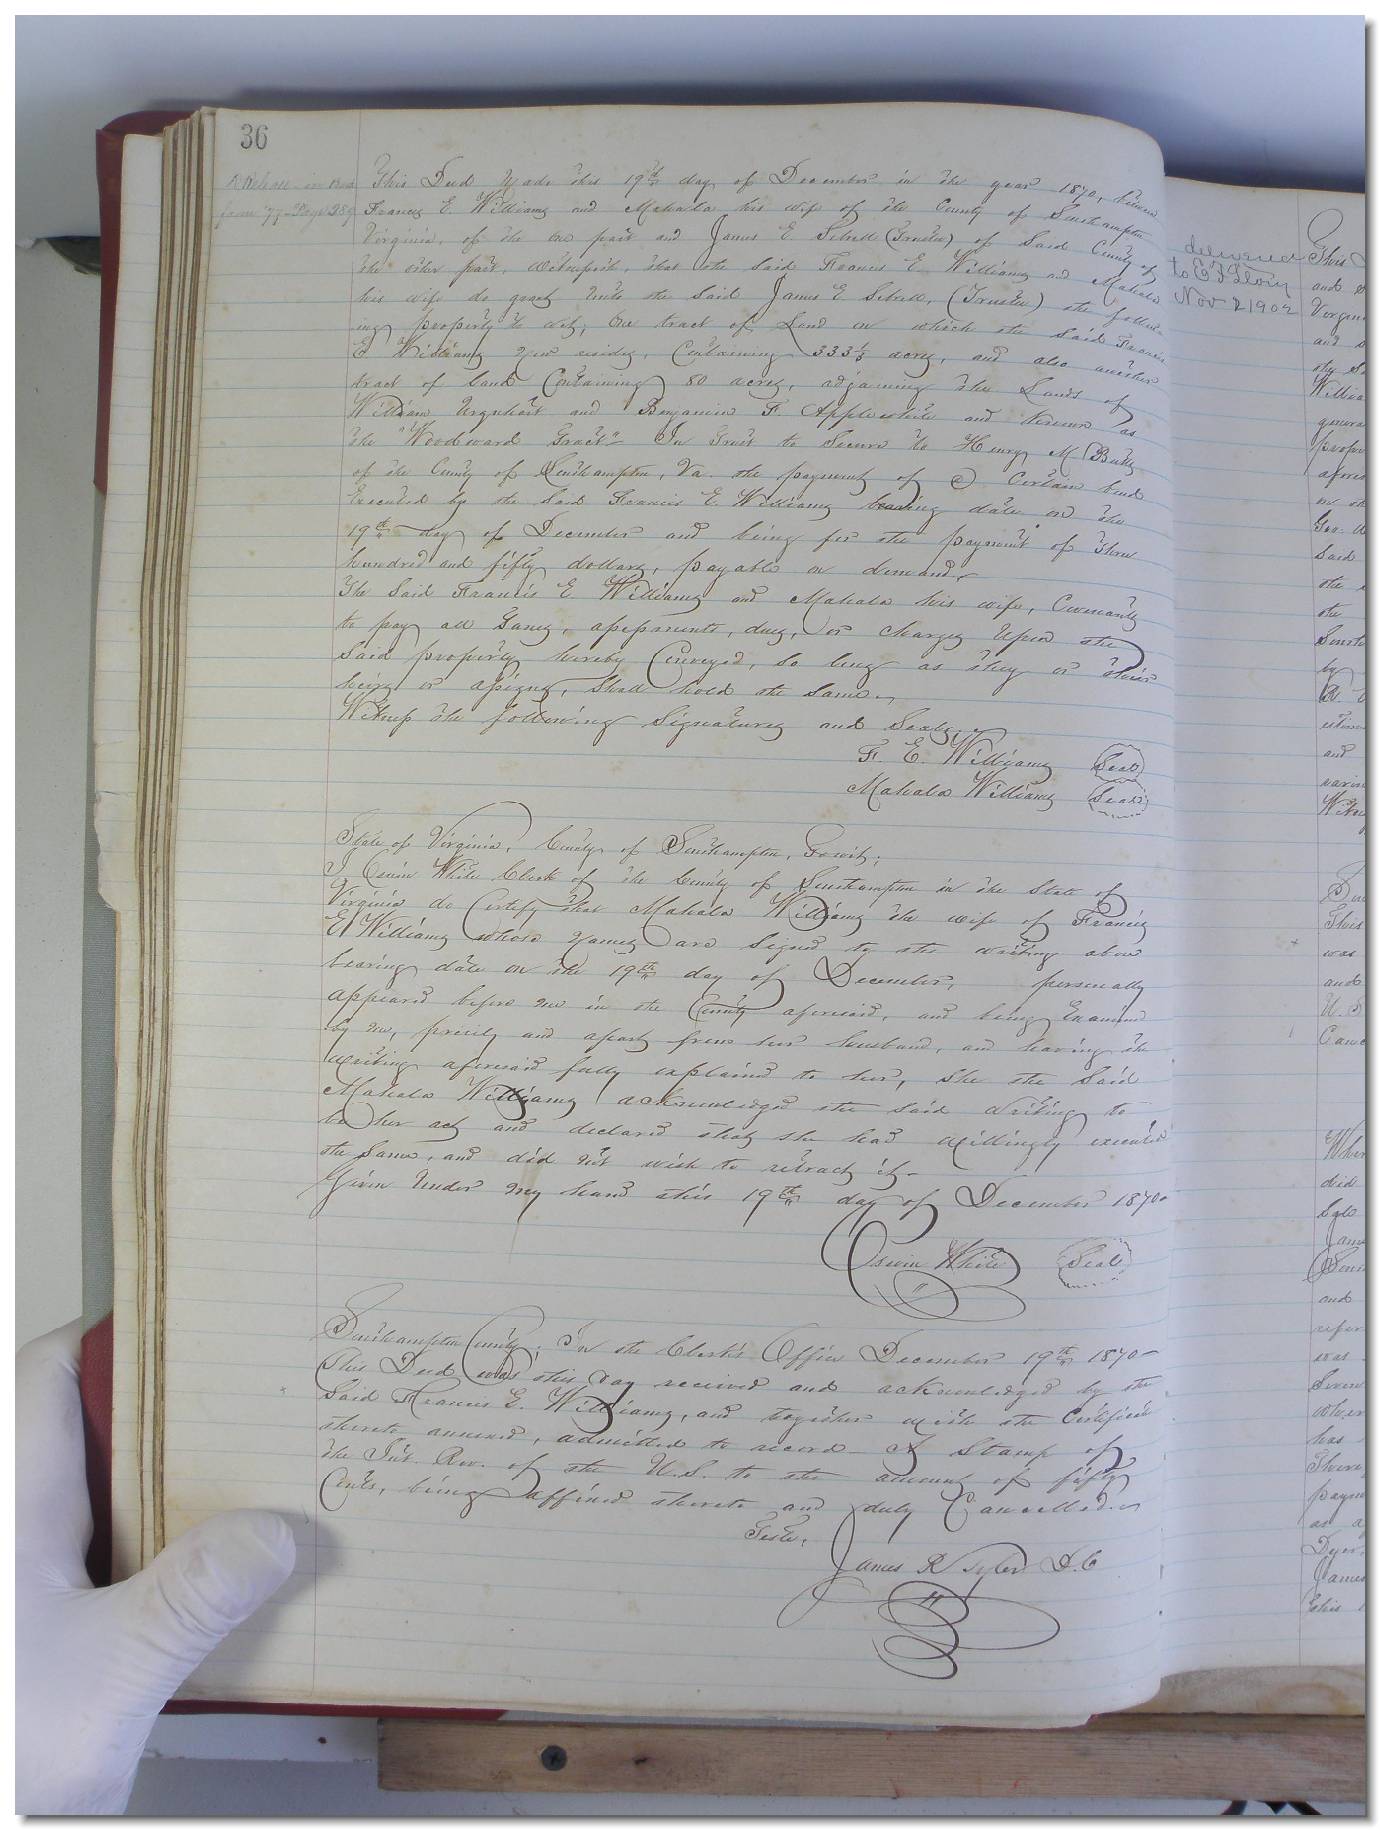 36
A Release in Book
from 77 Page 289
This Deed Made this 19th day of December in the year 1870, between
Francis E. Williams and Mahala his wife of the County of Southampton
Virginia, of the one part and James E. Sebrell (Trustee) of Said County of
the other part, Witnesseth, that the said Francis E Williams and Mahala
his wife do grant Unto the said James E Sebrell, (Trustee) the follow-
ing property to wit; One tract of Land on which the said Francis
E Williams now resides, Containing 333 1/3 acres, and also another
tract of land Containing 80 acres, adjoining the Lands of
William Urquhart and Benjamin F. Applewhite and Known as
the "Woodward Tract" In Trust to Secure to Henry M Butts
of the County of Southampton, Va. the payment of a Certain bond
Executed by the Said Francis E. Williams bearing date on the
19th day of December and being for the payment of Three
hundred and fifty dollars, payable on demand,
The Said Francis E Williams and Mahala his wife, Covenants
to pay all Taxes, assessments, dues, or charges Upon the
Said property hereby Conveyed, So long as they or their
heirs or assigns, Shall hold the Same.
Witness the following Signatures and Seals
F. E. Williams Seal
Mahala Williams Seal
State of Virginia, County of Southampton, Towit;
I White Clerk of the County of Southampton in the State of
Virginia do Certify that Mahala Williams the wife of Francis
E Williams whose Names are Signed to the writing above
bearing date on the 19th day of December, personally
appeared before me in the County aforesaid, and being Examined
by me, privily and apart from her husband, and having the
writing aforesaid fully explained to her, She the Said
Mahala Williams acknowledged the said Writing to
be her act and declared that she had willingly executed
the Same, and did not wish to retract it
Given Under my hand this 19th day of December 1870
White Seal
Southampton County; In the Clerk's Office December 19th 1870
This Deed was this day received and acknowledged by the
Said Francis E. Williams, and together with the Certificate
thereto annexed, admitted to record A Stamp of
the Int. Rev. of the U.S. to the amount of fifty
Cents, being affixed thereto and duly Cancelled.
Teste,
James R Tyler D.C
delivered
to
Nov 21902
This
and
Virgin
and
Willia
genera
proper
said
the
by
and
Witn
This
was
and
U.S
Canc
did
Jame
and
refer
was
Seven
wher
has
paym
as
Dyer
James
this